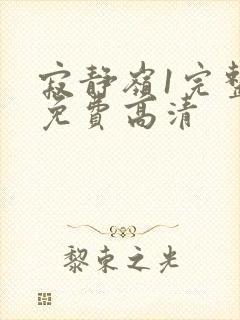 寂静嶺1完整
免費高清
黎束之光